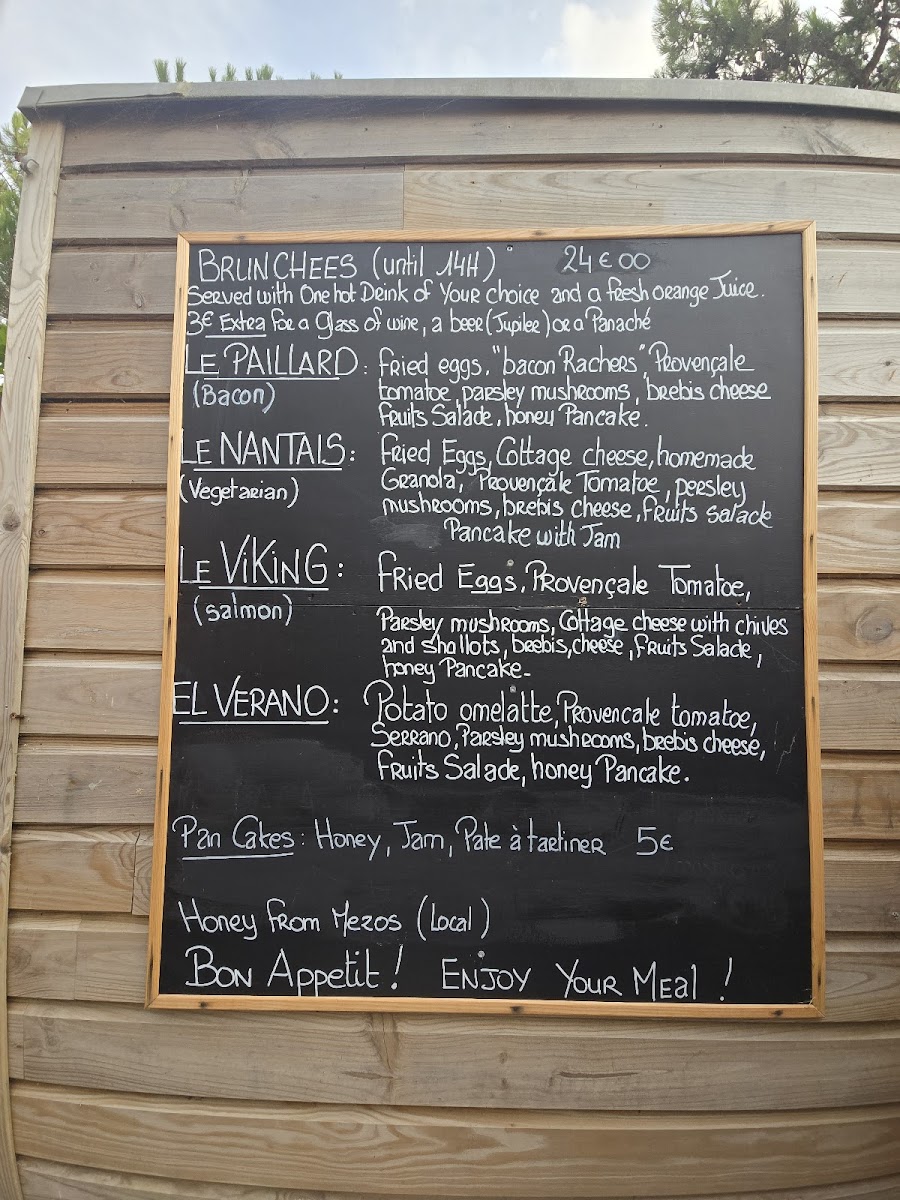 BRUNCHEES (until 14H) 24€00
Served with One hot Drink of Your choice and a fresh orange Juice.
3€ Extra for a Glass of wine, a beer (Jupilee) or a Panaché
LE PAILLARD: fried eggs. "bacon Rachers", Provençale
(Bacon) tomatoe, parsley mushrooms, brebis cheese
fruits Salade, honey Pancake.
LE NANTAIS: Fried Eggs, Cottage cheese, homemade
(Vegetarian) Granola, Provençale Tomatoe, persley
mushrooms, brebis cheese, fruits salade
Pancake with Jam
LE VIKING: Fried Eggs, Provençale Tomatoe,
(salmon) Parsley mushrooms, Cottage cheese with chives
and shallots, brebis, cheese, fruits Salade,
honey Pancake-
EL VERANO: Potato omelatte, Provencale tomatoe,
SERRANO, Parsley mushrooms, brebis cheese,
fruits Salade, honey Pancake.
Pan Cakes: Honey, Jam, Pate à tartiner 5€
Honey from Mezos (Local)
Bon Appetit! ENJOY YOUR MEAL!